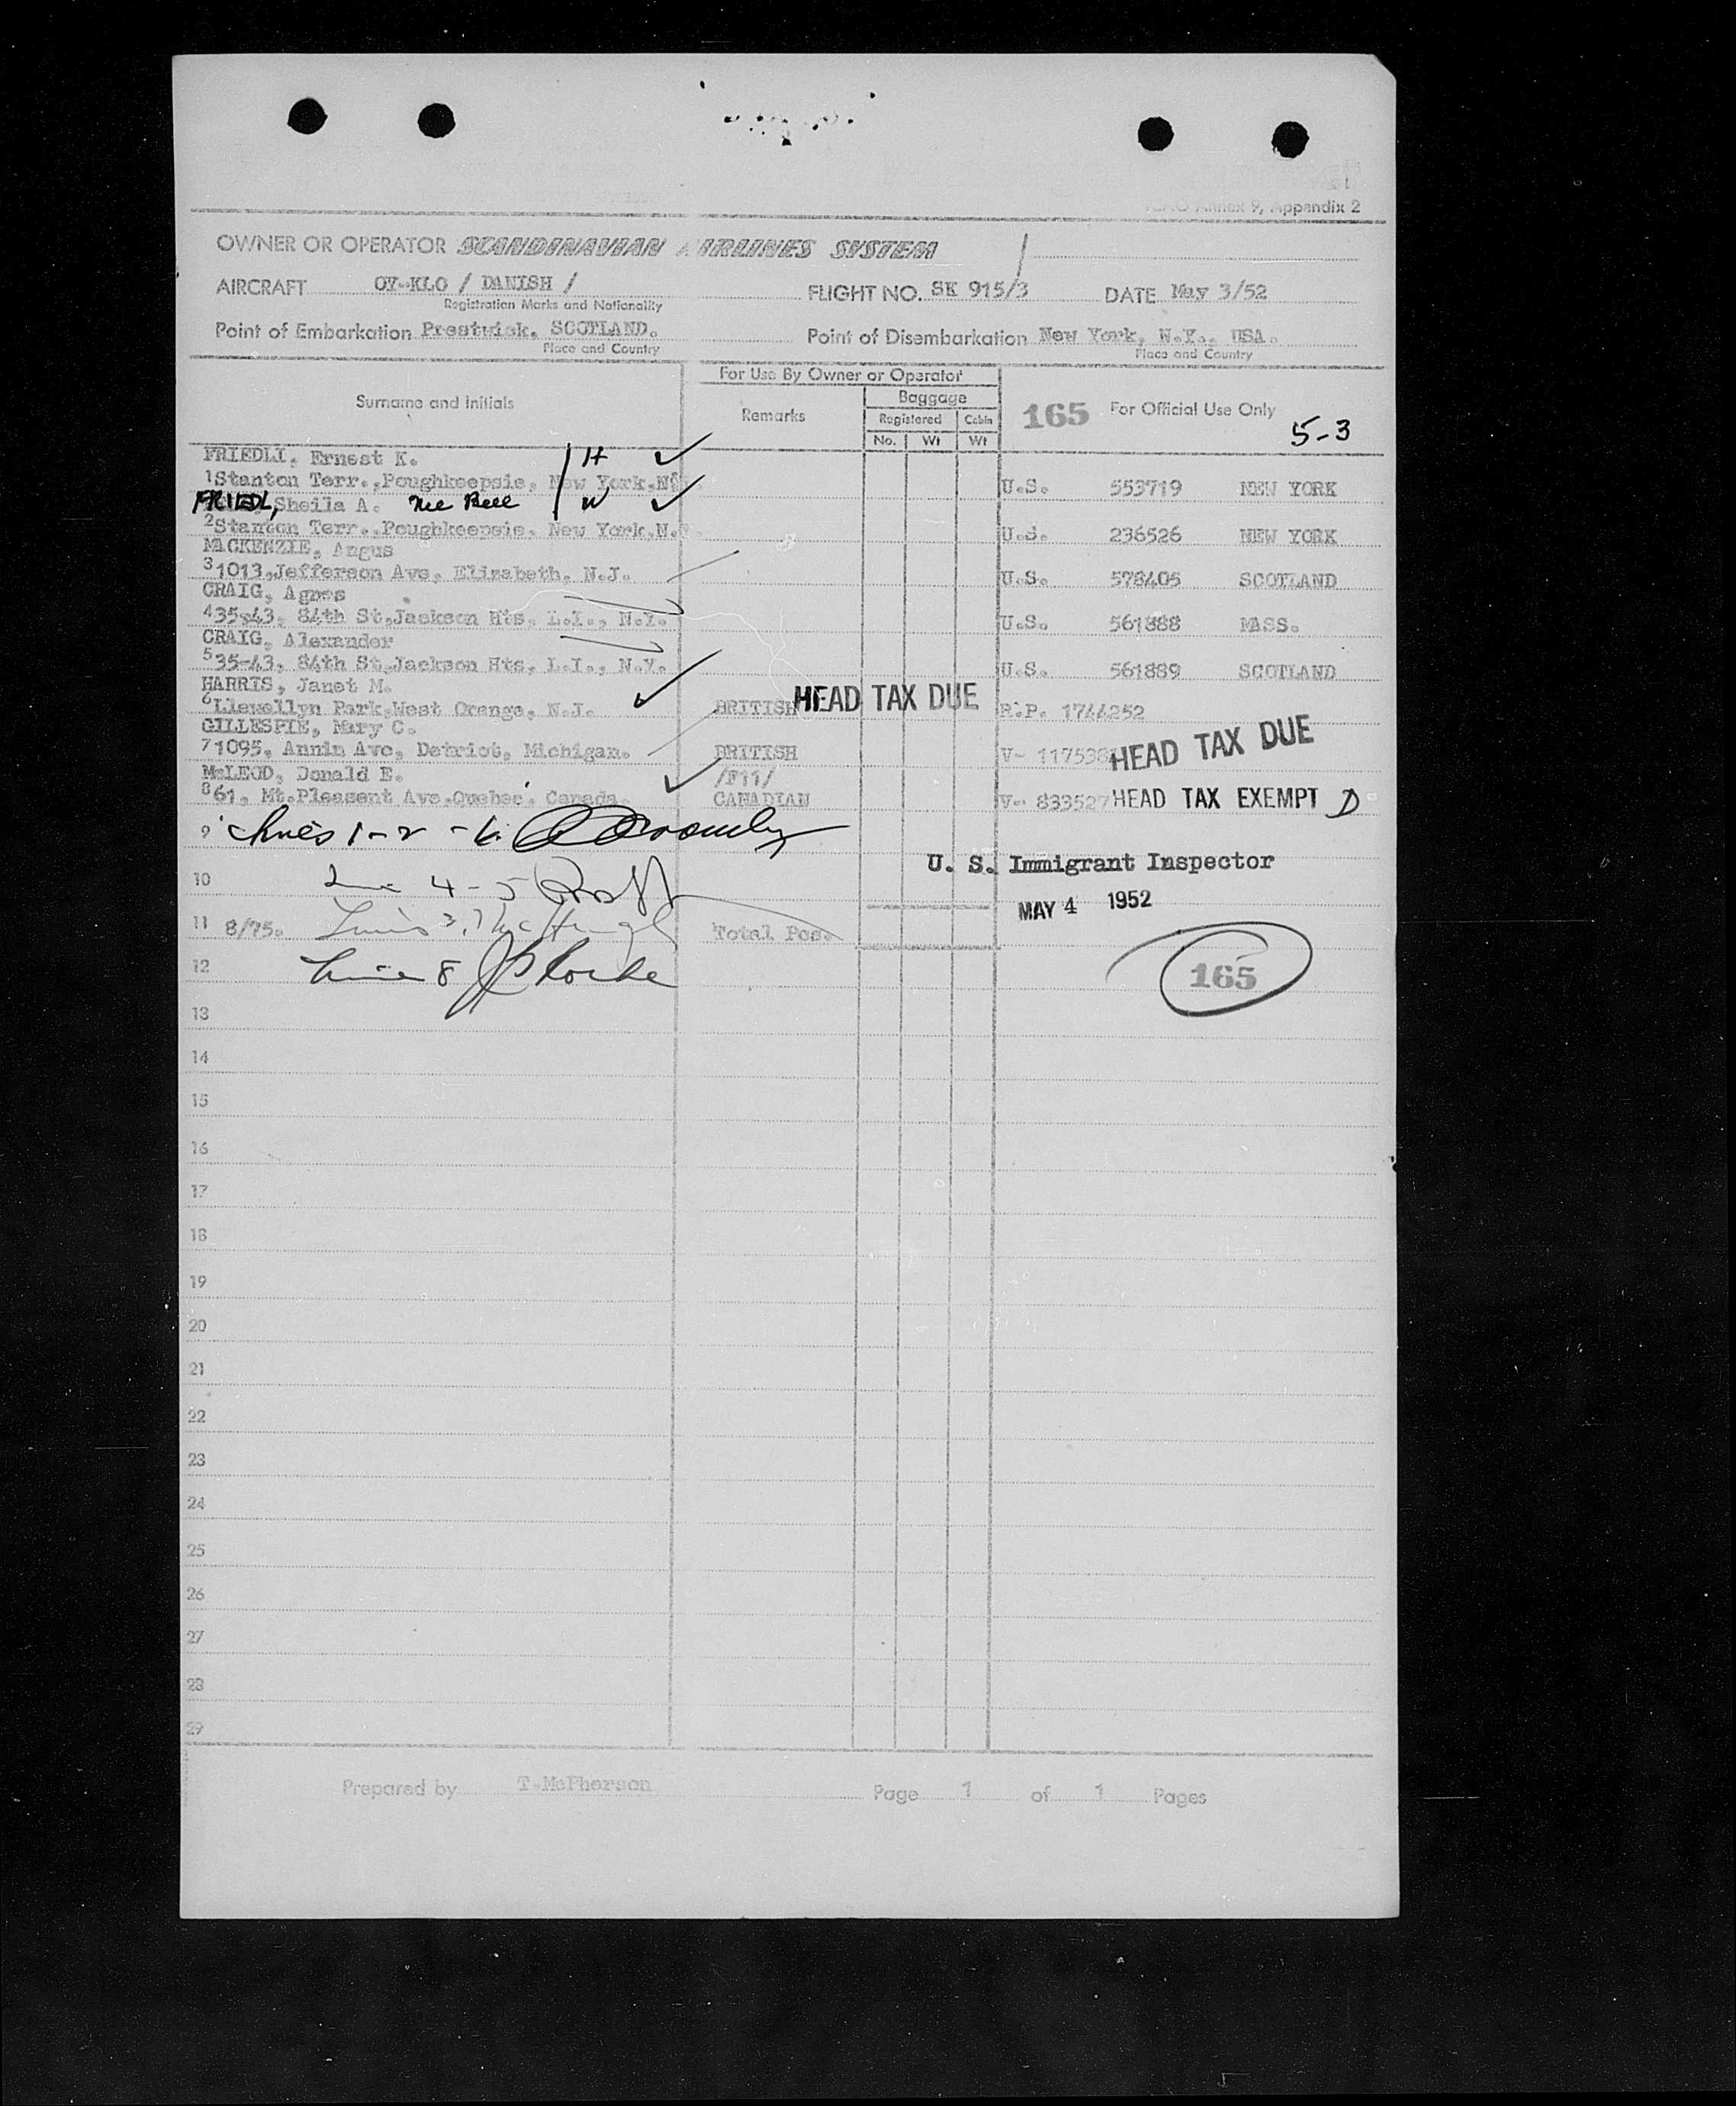 ICAO Annex 9, Appendix 2
OWNER OR OPERATOR SCANDINAVIAN AIRLINES SYSTEM
AIRCRAFT OY-KLO / DANISH / FLIGHT NO. SK 915/3 DATE May 3/52
Registration Marks and Nationality
Point of Embarkation Prestwick, SCOTLAND. Point of Disembarkation New York, N.Y., USA.
Place and Country Place and Country
For Use By Owner or Operator
Surname and Initials Remarks Baggage 165 For Official Use Only
Registered Cabin 5-3
No. Wt Wt
FRIEDLI, Ernest K. H ✓
1 Stanton Terr., Poughkeepsie, New York, N U.S. 553719 NEW YORK
FRIEDL, Sheila A. Nee Bell W ✓
2 Stanton Terr., Poughkeepsie, New York, N. U.S. 236526 NEW YORK
MACKENZIE, Angus
3 1013, Jefferson Ave, Elizabeth, N.J. U.S. 578405 SCOTLAND
CRAIG, Agnes
4 35-43, 84th St, Jackson Hts, L.I., N.Y. U.S. 561888 MASS.
CRAIG, Alexander
5 35-43, 84th St, Jackson Hts, L.I., N.Y. U.S. 561889 SCOTLAND
HARRIS, Janet M.
6 Llewellyn Park, West Orange, N.J. ✓ BRITISH HEAD TAX DUE R.P. 1744252
GILLESPIE, Mary C.
7 1095, Annin Ave, Detriot, Michigan. BRITISH V- 117538 HEAD TAX DUE
McLEOD, Donald E. /F11/
8 61, Mt. Pleasent Ave, Quebec, Canada. ✓ CANADIAN V- 833527 HEAD TAX EXEMPT D
9 Lines 1-2-6
U. S. Immigrant Inspector
10 Line 4-5
MAY 4 1952
11 8/75. Lines 3,7 Total Pcs.
12 Line 8 165
13
14
15
16
17
18
19
20
21
22
23
24
25
26
27
28
29
Prepared by T.McPherson Page 1 of 1 Pages